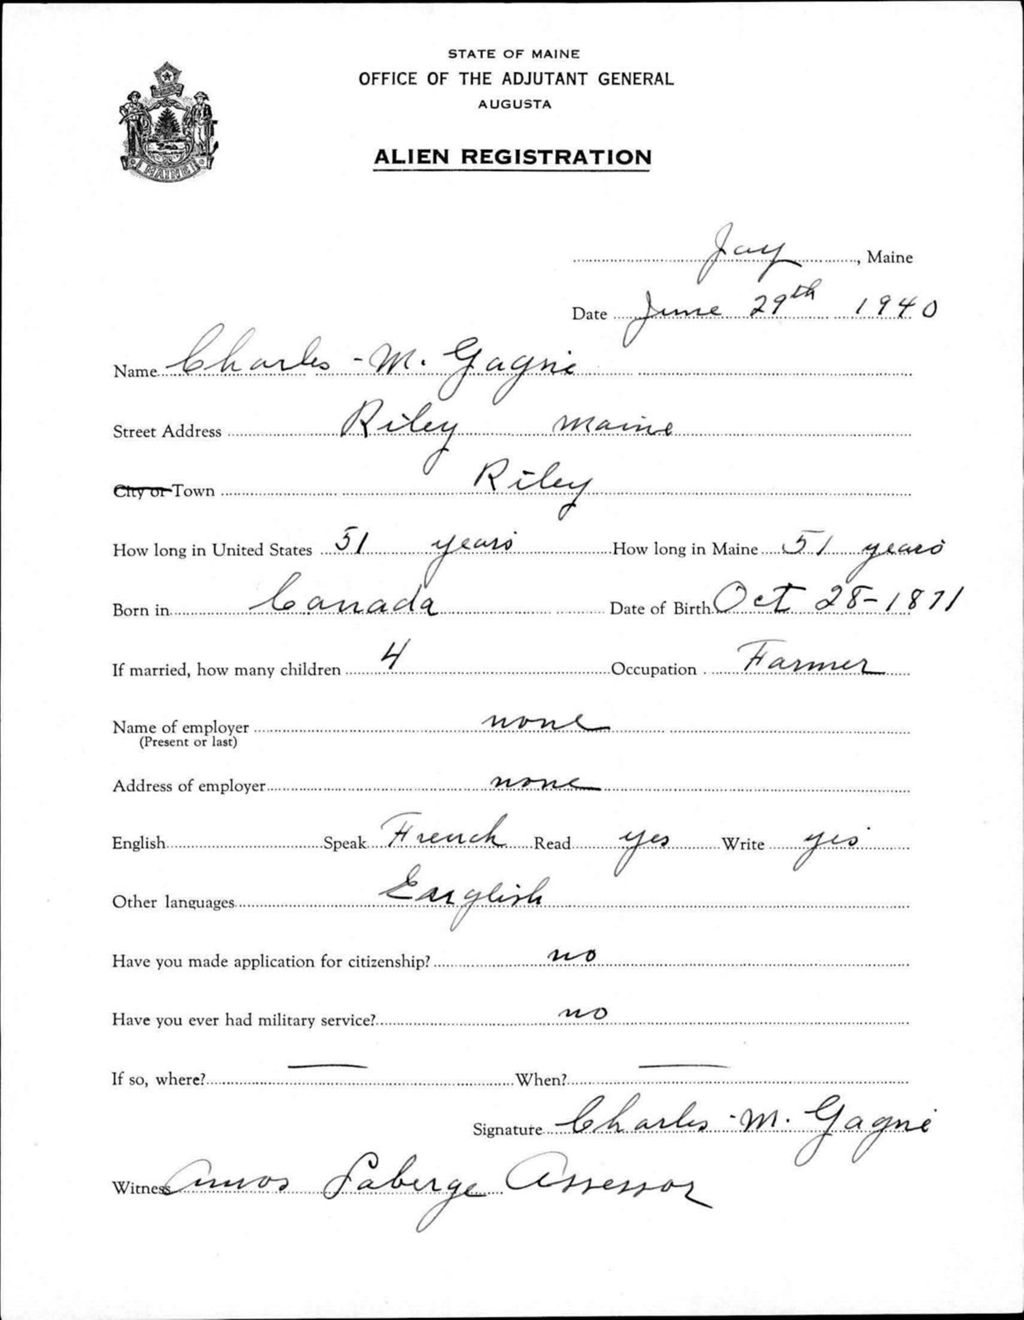 STATE OF MAINE
OFFICE OF THE ADJUTANT GENERAL
AUGUSTA
ALIEN REGISTRATION
MAINE
Jay, Maine
Date June 29th 1940
Name Charles - M. Gagne
Street Address Riley Maine
City or Town Riley
How long in United States 51 years How long in Maine 51 years
Born in Canada Date of Birth Oct 28-1871
If married, how many children 4 Occupation Farmer
Name of employer none
(Present or last)
Address of employer none
English Speak French Read yes Write yes
Other languages English
Have you made application for citizenship? no
Have you ever had military service? no
If so, where? — When? —
Signature Charles - M. Gagne
Witness Amos Laberge Assessor